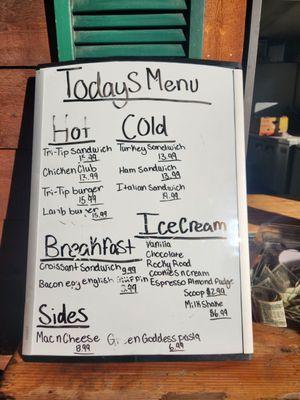 Todays Menu
Hot
Tri-Tip Sandwich
15.99
Chicken Club
Tri-Tip burger
15.99
Lamb burger
15.99
Cold
Turkey Sandwich
13.99
Ham Sandwich
13.99
Italian Sandwich
Breakfast
Croissant Sandwich 9.99
Bacon egg english muffin
IceCream
Vanilla
Chocolate
Rocky Road
cookies n cream
Espresso Almond Fudge
Scoop $2.99
Milkshake
$6.99
Sides
Mac n Cheese
8.99
Green Goddess pasta
6.99